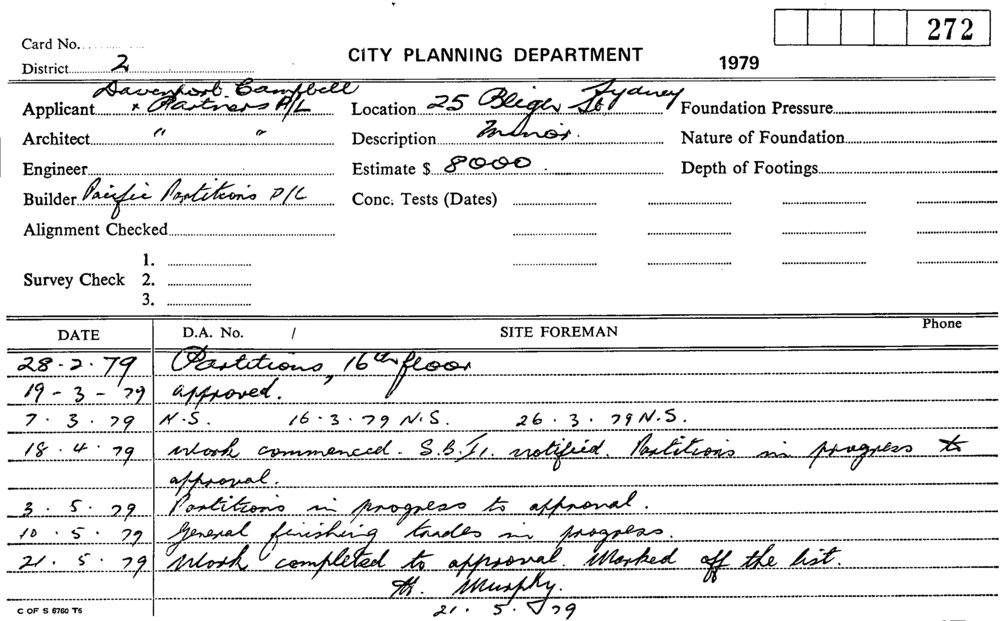 272
Card No.
CITY PLANNING DEPARTMENT 1979
District 2
Applicant Davenport Campbell & Partners P/L Location 25 Bligh St Sydney Foundation Pressure
Architect " " Description Minor. Nature of Foundation
Engineer Estimate $ 8000 Depth of Footings
Builder Pacific Partitions P/L Conc. Tests (Dates)
Alignment Checked
1.
Survey Check 2.
3.
DATE D.A. No. / SITE FOREMAN Phone
28-2-79 Partitions, 16th floor
19-3-79 approved.
7.3.79 N.S. 16.3.79 N.S. 26.3.79 N.S.
18.4.79 Work commenced. S.B.I. notified. Partitions in progress to
approval.
3.5.79 Partitions in progress to approval.
10.5.79 General finishing trades in progress.
21.5.79 Work completed to approval. Marked off the list.
Murphy.
21.5.79
C OF S 6760 T6